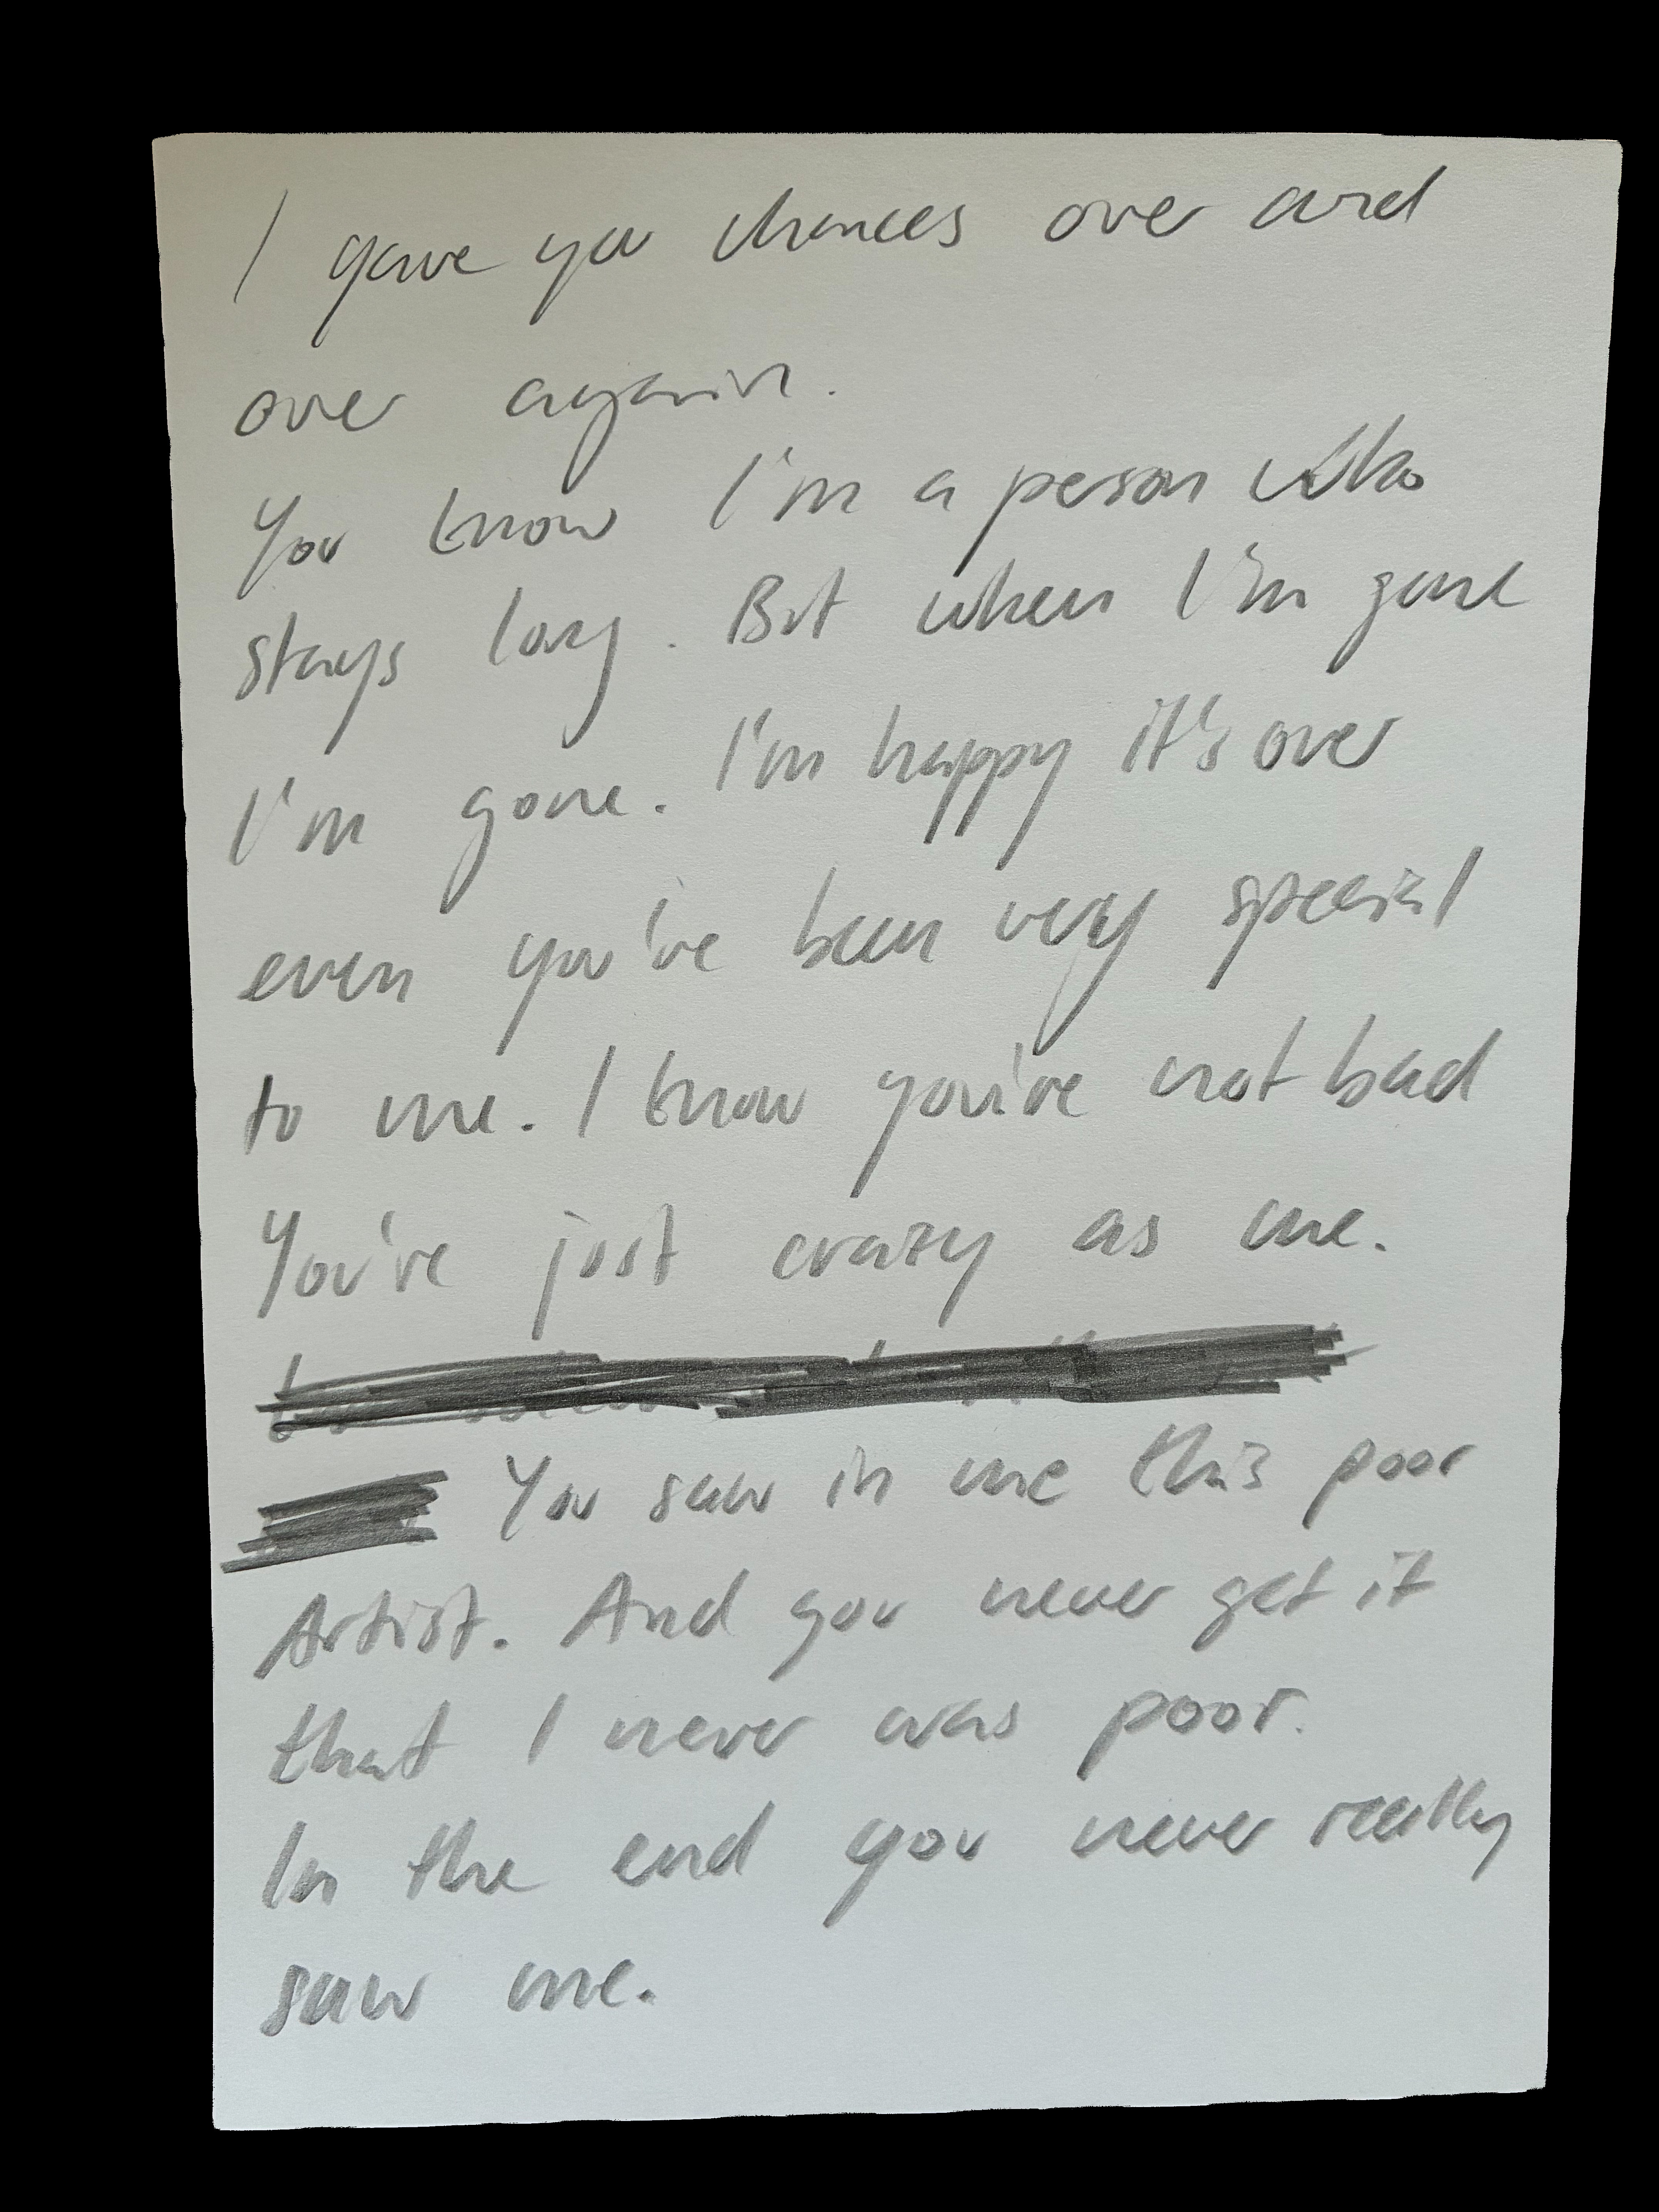 I gave you chances over and
over again.
You know I'm a person who
stays long. But when I'm gone
I'm gone. I'm happy it's over
even you've been very special
to me. I know you're not bad
You're just crazy as me.
You saw in me this poor
Artist. And you never get it
that I never was poor.
In the end you never really
saw me.